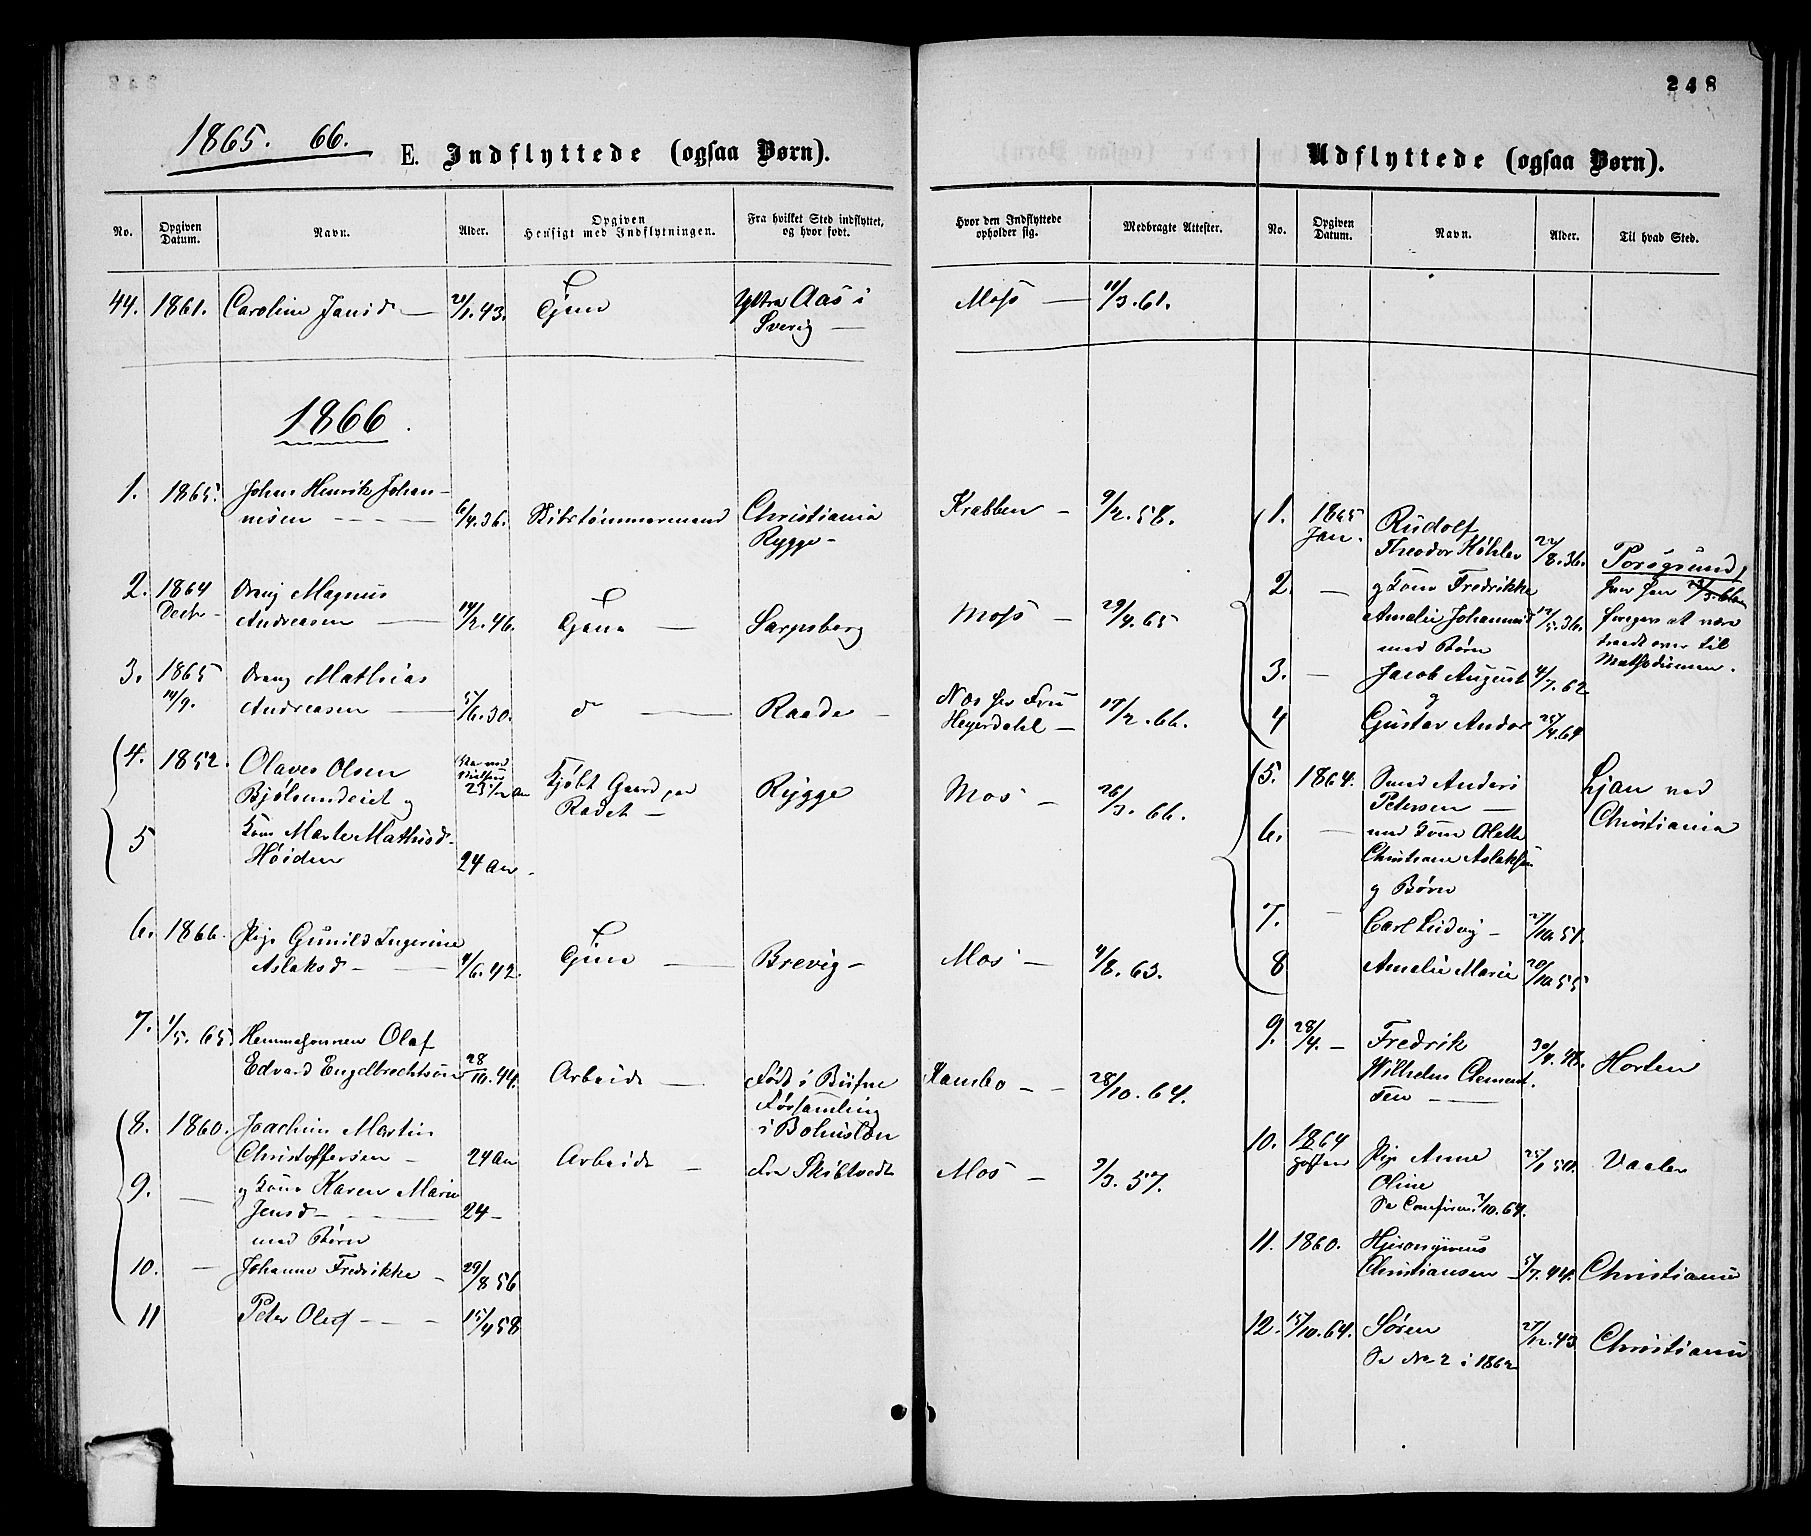 248
1865. 66.
E. Indflyttede (ogsaa Børn).
No.
Opgiven Datum.
Navn.
Alder.
Opgiven Hensigt med Indflytningen.
Fra hvilket Sted indflyttet, og hvor født.
Hvor den Indflyttede opholder sig.
Medbragte Attester.
44. 1861. Caroline Jansd — 1.43. Tjene Yttre Aas i Moss — 11/3.61.
Sverig —
1866.
1. 1865. Johan Henrik Johan-
nesen — 6/4.36. Skibstømmermand Christiania Krabben — 9/2.58.
Rygge -
2. 1864 Dreng Magnus
Decbr Andreasen — 14/2.46. Tjene — Sarpsborg Moss — 29/4.65
3. 1865 Dreng Mathias
14/9. Andreasen — 5/6.30. d — Raade — Nos hos Fru
Heyerdahl — 17/2.66.
4. 1852. Olaves Olsen
Bjølsundeiet og Kjøbt Gaard Rygge Mos — 26/3.66.
Radet —
5 Kone Marte Mathisd-
Høiden 24 Aar
6. 1866. Pige Gunild Ingerine
Aslaksd — 4/6.42. Tjene — Brevig — Mos — 4/8.63.
7. 1/5.65 Olaf
Edvard Engelbrechtsen 28/10.44. Arbeide — Født i Kambo — 28/10.64.
Forsamling
i Bohuslen
8. 1860. Joachim Martin
Christoffersen — 24 Aar Arbeide — Fra Skibtvedt Mos — 9/3.57.
9. — og Kone Karen Marie
Jensd — 24 —
med Børn
10. — Johanne Fredrikke — 29/8 56
11 Peter Olaf — 15/4 58
Udflyttede (ogsaa Børn).
No.
Opgiven Datum.
Navn.
Alder.
Til hvad Sted.
1. 1865 Rudolf
Jan. Theodor Køhler 22/8.36. Porsgrund,
2. — og Kone Fredrikke
Amalie Johannesd 12/5.36. at være
med Børn traadt over til
3. — Jacob August 4/7.62 Methodismen.
og
4 Gustav Andor 25/4.64
5. 1864. Svend Anders Ljan ved
Petersen — Christiania
6. — med Kone Olette
Christiane Aslaksen
og Børn
7. — Carl Ludvig — 7/10.51.
8 Amalie Marie 20/10.55
9. 28/4. — Fredrik 30/4.48. Horten
Wilhelm Clement-
sen —
10. 1864 Pige Anne Vaaler
Høsten Oline
Se Confirm. 7/10.64.
11. 1860. Hieronymus
Christiansen — 5/7.44. Christiania
12. 15/10.64. Søren 27/12.43 Christiania
Se No 2 i 1862